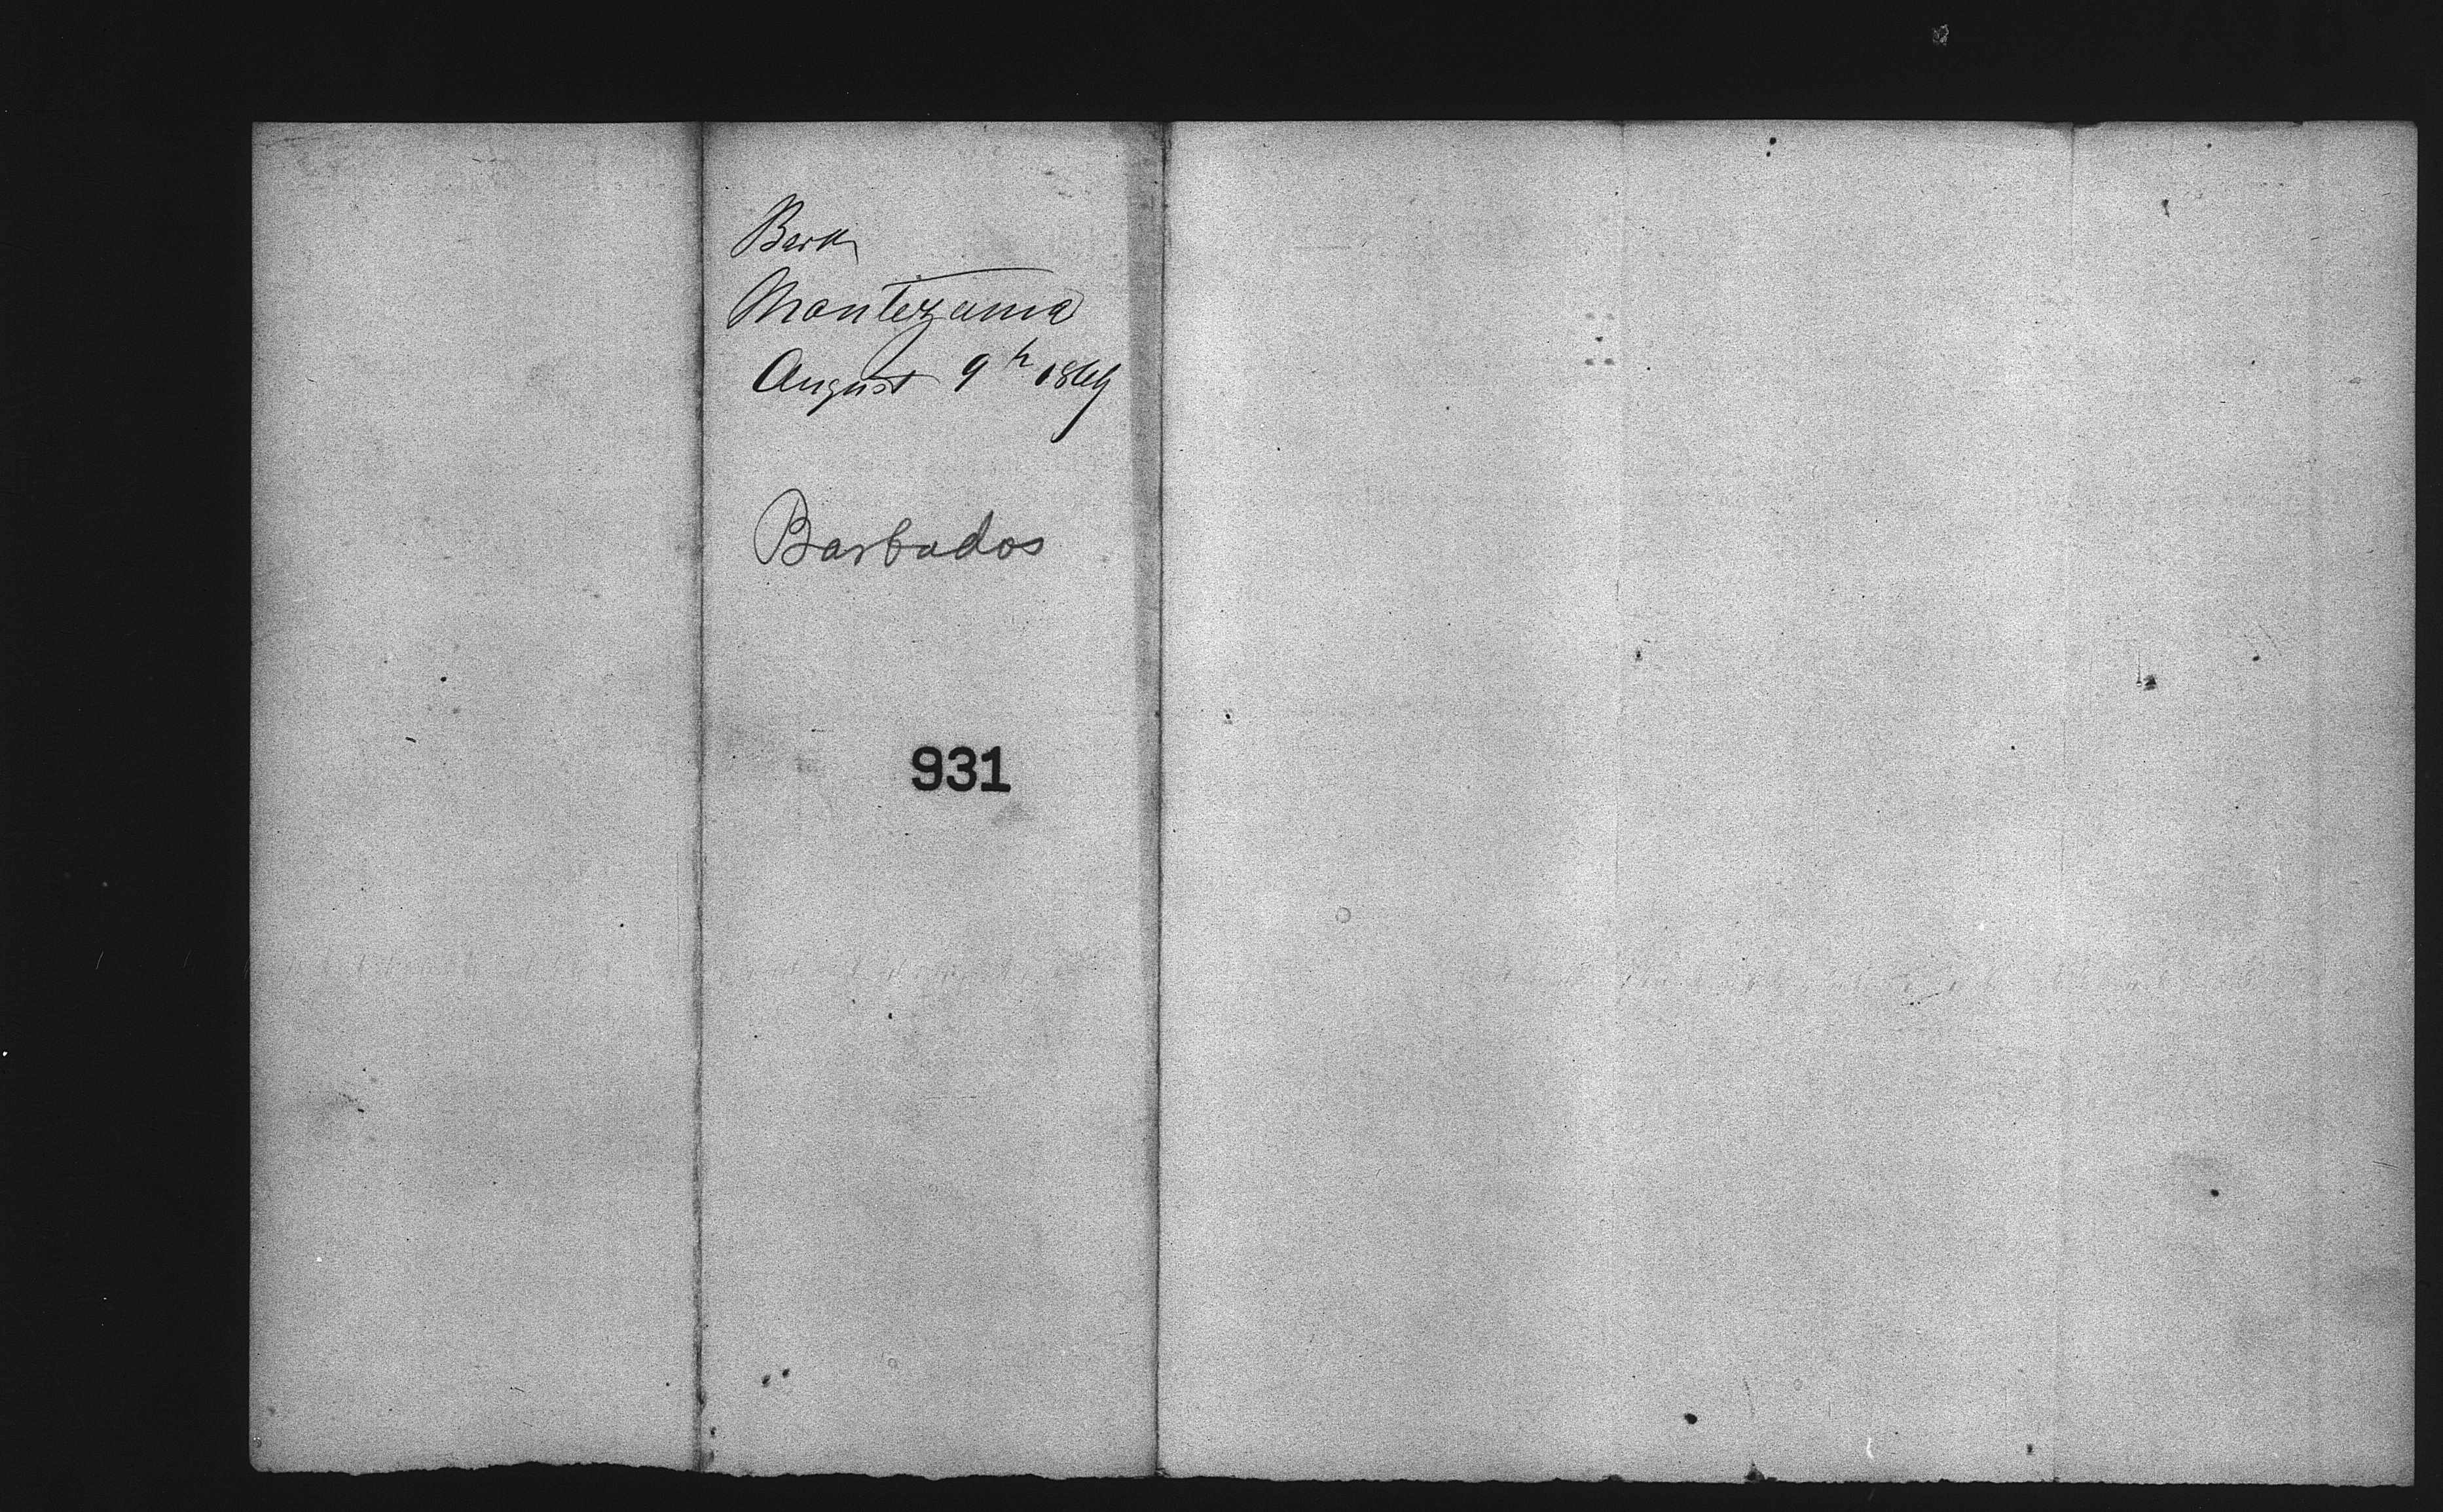 Bark
Montezuma
August 9th 1869
Barbados
931